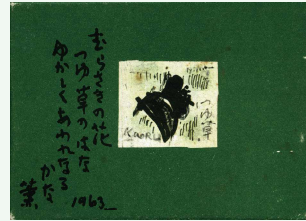 むらさきの花
つゆ草のはな
ゆかしくあわれなる
かな
薫
1963
つゆ草
KAORU